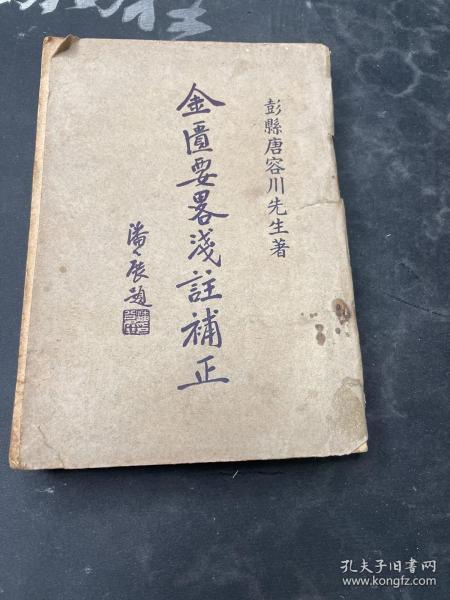 彭縣唐容川先生著
金匱要畧淺註補正
潘公展題
孔夫子旧书网
www.kongfz.com